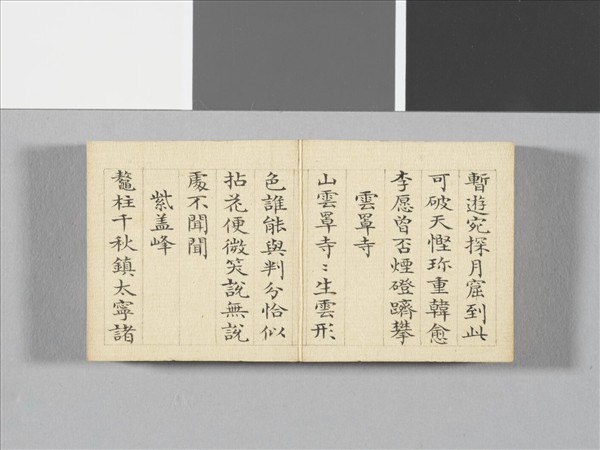 暫遊宛探月窟到此
可破天慳珎重韓愈
李愿曾否煙磴躋攀
雲罩寺
山雲罩寺〻生雲形
色誰能與判分恰似
拈花便微笑說無說
處不聞聞
紫盖峰
鼇柱千秋鎮太寧諸